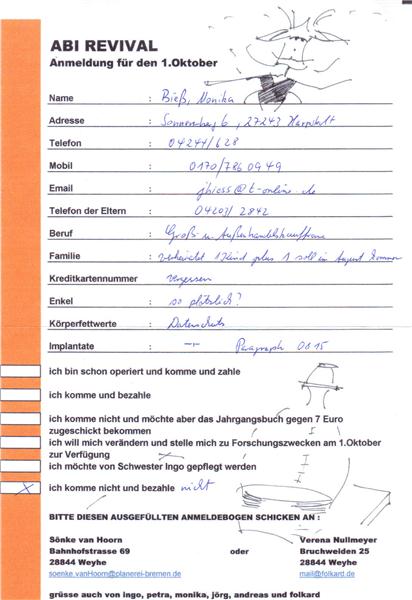 ABI REVIVAL
Anmeldung für den 1.Oktober
Name : Bieß, Monika
Adresse : Sonnenberg 6, 27243 Harpstedt
Telefon : 04244/628
Mobil : 0170/786 09 49
Email : jbiess@t-online.de
Telefon der Eltern : 04203/2842
Beruf : Groß- u. Außenhandelskauffrau
Familie : verheiratet 1 Kind plus 1 soll im August kommen
Kreditkartennummer : vergessen
Enkel : so plötzlich?
Körperfettwerte : Datenschutz
Implantate : -"- Paragraph 0815
ich bin schon operiert und komme und zahle
ich komme und bezahle
ich komme nicht und möchte aber das Jahrgangsbuch gegen 7 Euro
zugeschickt bekommen
ich will mich verändern und stelle mich zu Forschungszwecken am 1.Oktober
zur Verfügung
ich möchte von Schwester Ingo gepflegt werden
x ich komme nicht und bezahle nicht
BITTE DIESEN AUSGEFÜLLTEN ANMELDEBOGEN SCHICKEN AN :
Sönke van Hoorn Verena Nullmeyer
Bahnhofstrasse 69 oder Bruchweiden 25
28844 Weyhe 28844 Weyhe
soenke.vanHoorn@planerei-bremen.de mail@folkard.de
grüsse auch von ingo, petra, monika, jörg, andreas und folkard